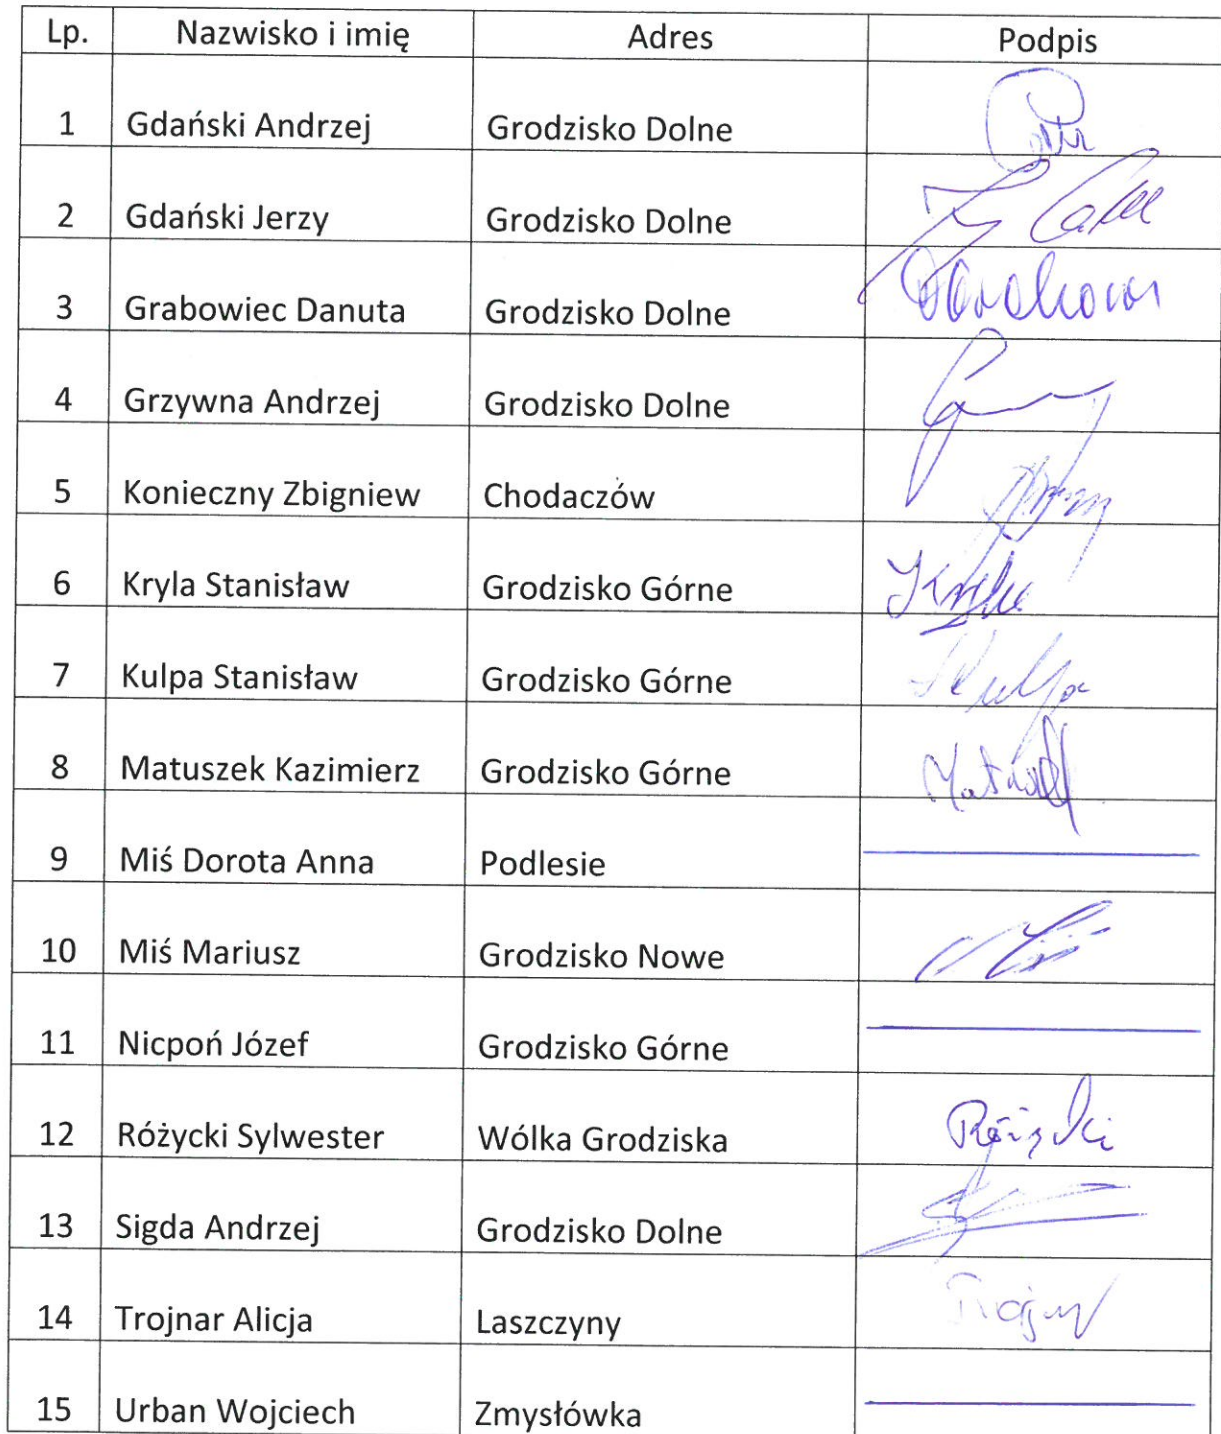 Lp. Nazwisko i imię Adres Podpis
1 Gdański Andrzej Grodzisko Dolne
2 Gdański Jerzy Grodzisko Dolne
3 Grabowiec Danuta Grodzisko Dolne
4 Grzywna Andrzej Grodzisko Dolne
5 Konieczny Zbigniew Chodaczów
6 Kryla Stanisław Grodzisko Górne
7 Kulpa Stanisław Grodzisko Górne Kulpa
8 Matuszek Kazimierz Grodzisko Górne
9 Miś Dorota Anna Podlesie
10 Miś Mariusz Grodzisko Nowe
11 Nicpoń Józef Grodzisko Górne
12 Różycki Sylwester Wólka Grodziska Różycki
13 Sigda Andrzej Grodzisko Dolne
14 Trojnar Alicja Laszczyny
15 Urban Wojciech Zmysłówka